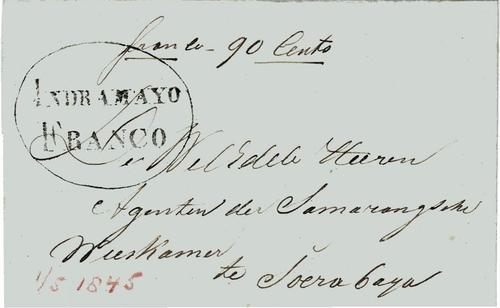 franco - 90 Cents
INDRAMAYO
FRANCO
De Wel Edele Heeren
Agenten der Samarangsche
Weeskamer
te Soerabaya
1/5 1845